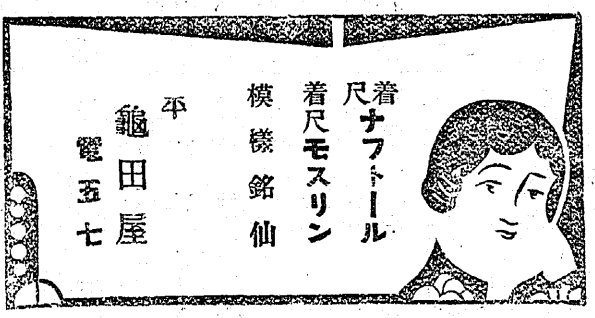 着尺ナフトール
着尺モスリン
模様銘仙
平
龜田屋
電五七